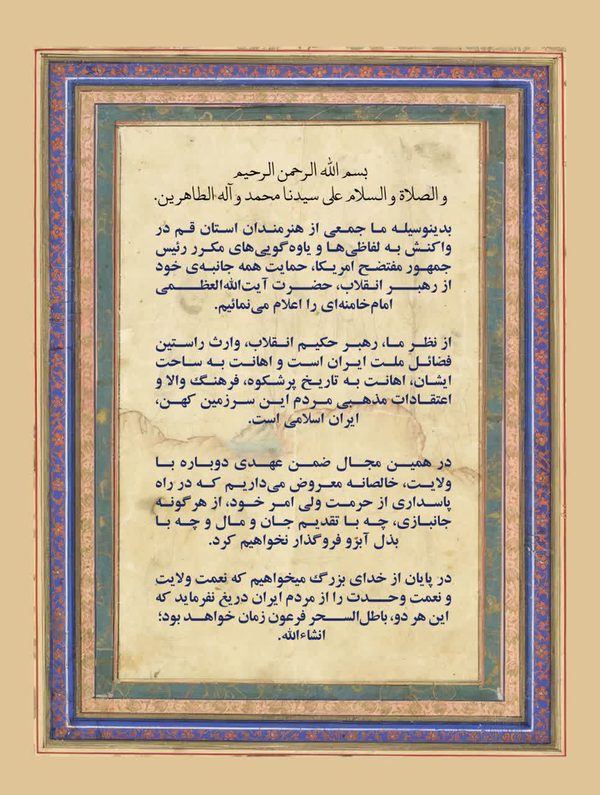 بسم الله الرحمن الرحیم
و الصلاة و السلام علی سیدنا محمد و آله الطاهرین.
بدینوسیله ما جمعی از هنرمندان استان قم در
واکنش به لفاظی‌ها و یاوه‌گویی‌های مکرر رئیس
جمهور مفتضح امریکا، حمایت همه جانبه‌ی خود
از رهبر انقلاب، حضرت آیت‌الله‌العظمی
امام‌خامنه‌ای را اعلام می‌نمائیم.
از نظر ما، رهبر حکیم انقلاب، وارث راستین
فضائل ملت ایران است و اهانت به ساحت
ایشان، اهانت به تاریخ پرشکوه، فرهنگ والا و
اعتقادات مذهبی مردم این سرزمین کهن،
ایران اسلامی است.
در همین مجال ضمن عهدی دوباره با
ولایت، خالصانه معروض می‌داریم که در راه
پاسداری از حرمت ولی امر خود، از هرگونه
جانبازی، چه با تقدیم جان و مال و چه با
بذل آبرو فروگذار نخواهیم کرد.
در پایان از خدای بزرگ میخواهیم که نعمت ولایت
و نعمت وحدت را از مردم ایران دریغ نفرماید که
این هر دو، باطل‌السحر فرعون زمان خواهد بود؛
انشاءالله.